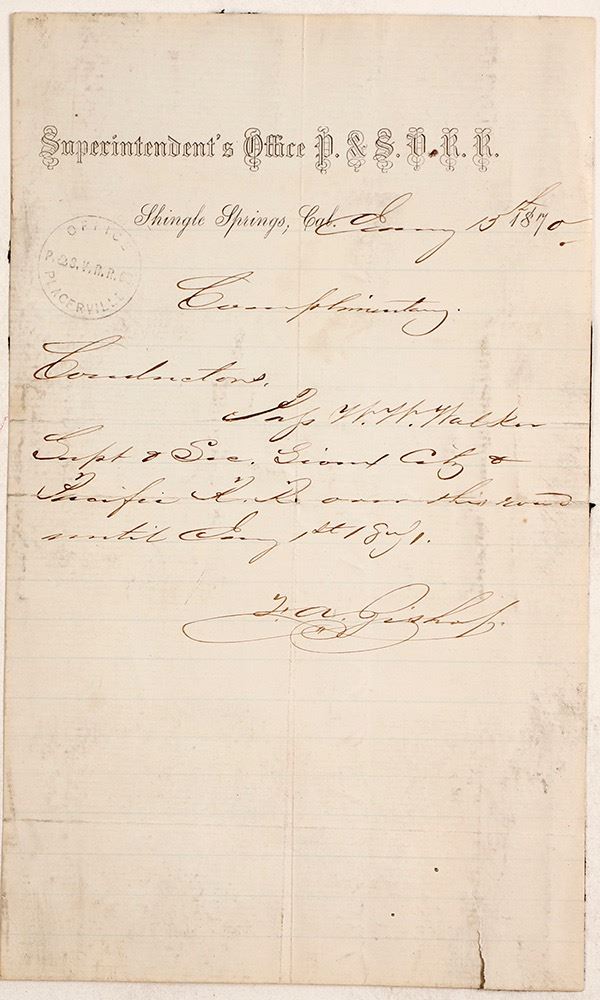 Superintendent's Office P. & S. V. R. R.
Shingle Springs, Cal. Jany 15th 1870.
OFFICE
P. & S. V. R. R.
PLACERVILLE
Complimentary.
Conductors,
Pass W. W. Walker
Supt & Sec. Sioux City &
Pacific R. R. over this road
until Jany 1st 1871.
F. A. Bishop.